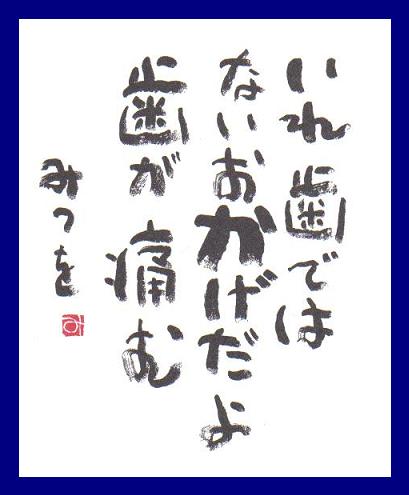 いれ歯では
ないおかげだよ
歯が痛む
みつを
み